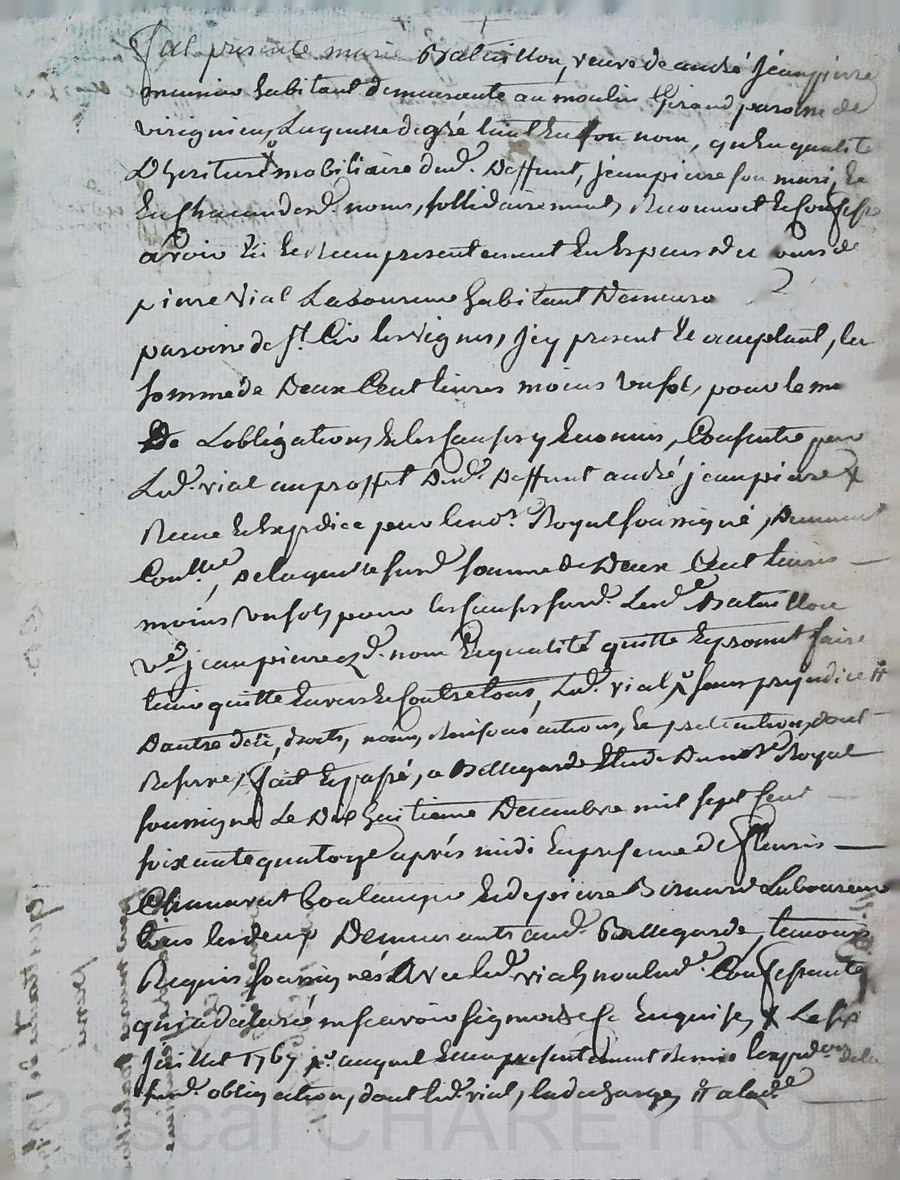 fut presente marie Bataillon, veuve de andré Jeanpierre
meunier habitant demeurante au moulin Giraud paroisse de
virignieu, Laquelle de gré tant en son nom, qu'en qualité
D'heritiere mobiliaire dud. Deffunt, jeanpierre son mari, et
En chacun desd. noms, sollidairement, Reconnoit et Confesse
avoir eu et Receu presentement En Especes du cours de
pierre Vial Laboureur habitant Demeure
paroisse de St. Cir les vignes, Icy present et acceptant, la
somme de Deux Cent livres moins un sol, pour le
De L'obligation, et les causes y Enoncées, Consentie par
Led. vial au proffit dud. Deffunt andré jeanpierre x
Receue et Expedice par le no.re Royal soussigné,
Conlle, De laquelle surd. somme de Deux Cent livres
moins un sol, pour les causes surd. Lad.e Bataillon
v.e jeanpierre ezd. nom et qualité quitte et promet faire
tenir quitte Envers et Contre tous, Led. vial, sans prejudice
D'autre deu, droits, noms, actions, et pretentions, dont
Reserve, fait et passé, a Bellegarde Etude Du not.re Royal
soussigné Le Dix huitieme Decembre mil sept Cent
soixante quatorze après midi En presence de fleuris
Chanavat boulanger et de pierre Bernard Laboureur
tous les deux Demeurants aud. Bellegarde, temoins
Requis soussignés Avec led. vial, non lad. Confessante
qui a declaré ne scavoir signer de ce Enquise, x Le six
Juillet 1767 auquel a Eté presentement Remis l'expedon de la
surd. obligation, dont led. vial, la decharge,
Pascal CHAREYRON